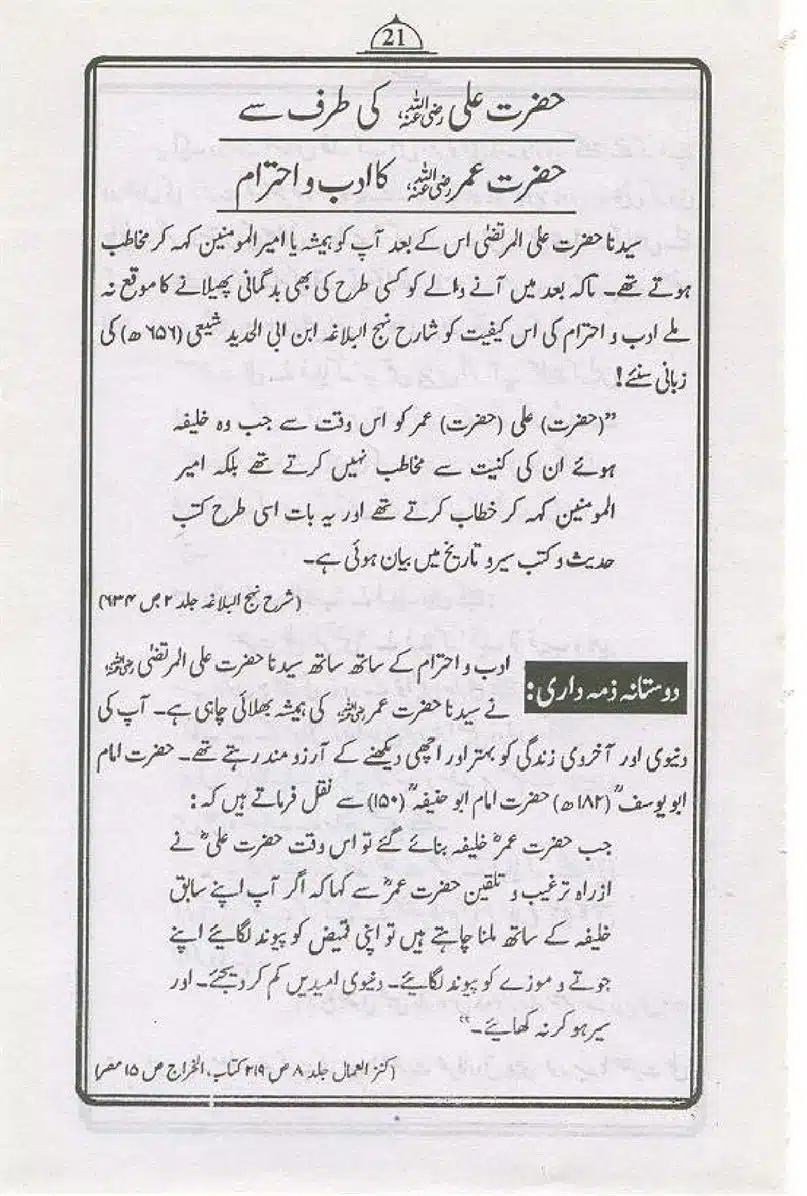 21
حضرت علی رضی اللہ عنہ کی طرف سے
حضرت عمر رضی اللہ عنہ کا ادب و احترام
سیدنا حضرت علی المرتضیٰ اس کے بعد آپ کو ہمیشہ یا امیر المومنین کہہ کر مخاطب
ہوتے تھے۔ تاکہ بعد میں آنے والے کو کسی طرح کی بھی بدگمانی پھیلانے کا موقع نہ
ملے ادب و احترام کی اس کیفیت کو شارح نہج البلاغہ ابن ابی الحدید شیعی (۶۵۶ھ) کی
زبانی سنئے!
”(حضرت) علی (حضرت) عمر کو اس وقت سے جب وہ خلیفہ
ہوئے ان کی کنیت سے مخاطب نہیں کرتے تھے بلکہ امیر
المومنین کہہ کر خطاب کرتے تھے اور یہ بات اسی طرح کتبِ
حدیث و کتب سیر و تاریخ میں بیان ہوئی ہے۔
(شرح نہج البلاغہ جلد ۲ ص ۶۳۴)
دوستانہ ذمہ داری: ادب و احترام کے ساتھ ساتھ سیدنا حضرت علی المرتضیٰ رضی اللہ عنہ
نے سیدنا حضرت عمر رضی اللہ عنہ کی ہمیشہ بھلائی چاہی ہے۔ آپ کی
دنیوی اور آخروی زندگی کو بہتر اور اچھی دیکھنے کے آرزو مند رہتے تھے۔ حضرت امام
ابو یوسفؒ (۱۸۲ھ) حضرت امام ابو حنیفہؒ (۱۵۰) سے نقل فرماتے ہیں کہ:
جب حضرت عمرؓ خلیفہ بنائے گئے تو اس وقت حضرت علیؓ نے
ازراہ ترغیب و تلقین حضرت عمرؓ سے کہا کہ اگر آپ اپنے سابق
خلیفہ کے ساتھ ملنا چاہتے ہیں تو اپنی قمیض کو پیوند لگائیے اپنے
جوتے و موزے کو پیوند لگائیے۔ دنیوی امیدیں کم کر دیجئے۔ اور
سیر ہو کر نہ کھائیے۔“
(کنز العمال جلد ۸ ص ۲۱۹ کتاب، الخراج ص ۱۵ مصر)